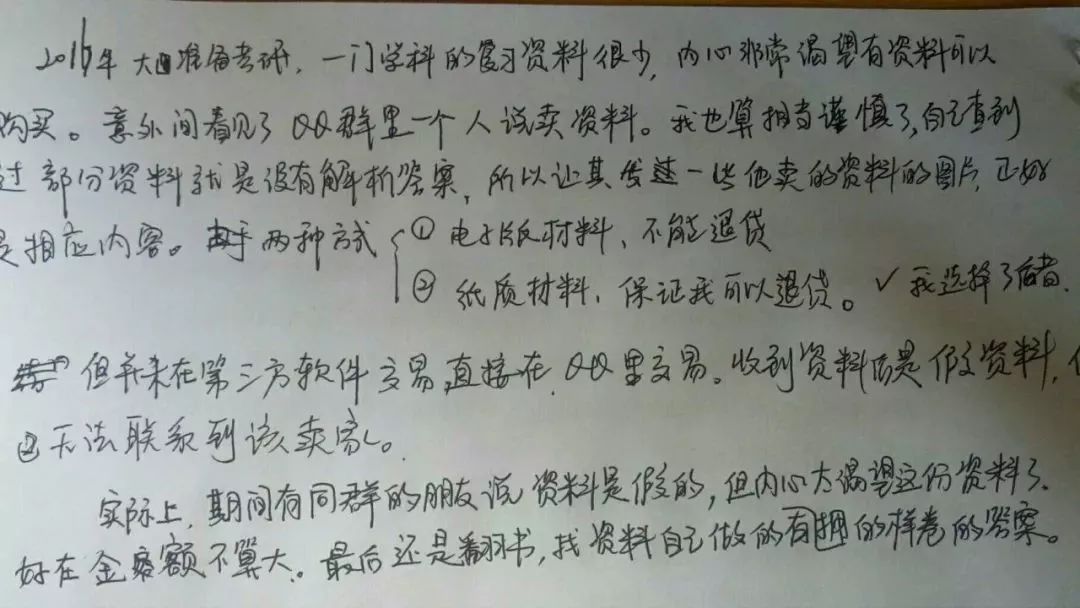 2016年大四准备考研，一门学科的复习资料很少，内心非常渴望有资料可以
购买。意外间看见了QQ群里一个人说卖资料。我也算相当谨慎了，自己查到
过部分资料就是没有解析答案，所以让其发过一些他卖的资料的图片，正好
是相应内容。由于两种方式 ① 电子版材料、不能退货
② 纸质材料、保证我可以退货。✓我选择了后者.
但并未在第三方软件交易，直接在QQ里交易。收到资料后是假资料，
已无法联系到该卖家。
实际上，期间有同群的朋友说资料是假的，但内心太渴望这份资料了.
好在金额不算大。最后还是翻书，找资料自己做的的样卷的答案。